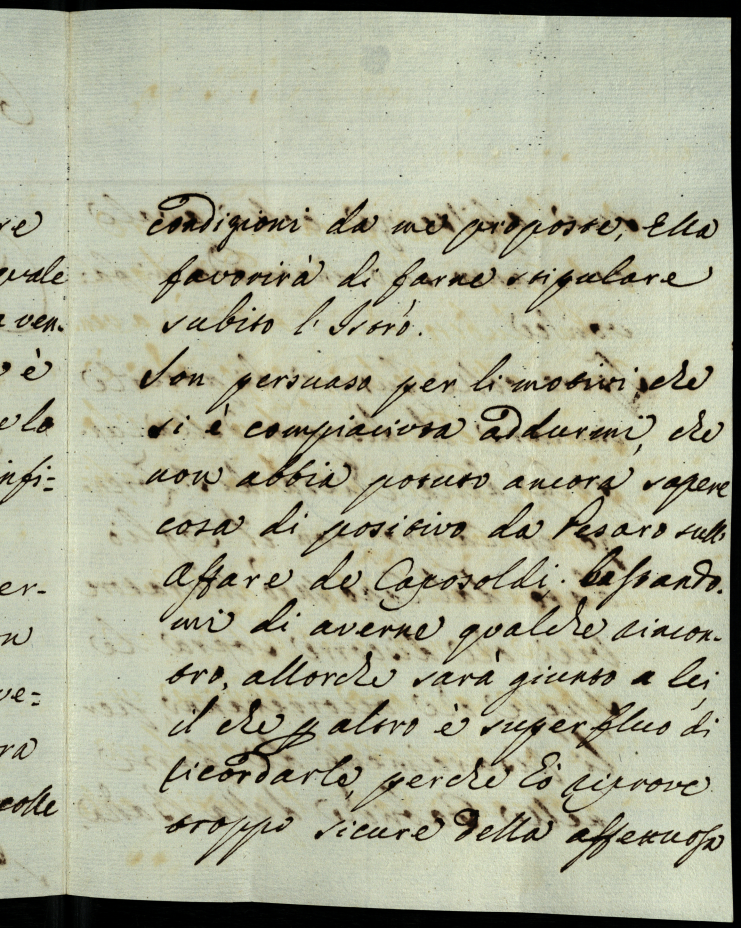 re
quale
a ven-
o è
e la
nfi=
er-
n
ve=
ra
colle
condizioni da me proposte, Ella
favorirà di farne stipulare
subito l'Istrõ.
Son persuaso per li motivi, che
si è compiaciuta addurmi, che
non abbia potuto ancora sapere
cosa di positivo da Pesaro sull'
affare de Caposoldi, bastando-
mi di averne qualche riscon-
tro, allorche sarà giunto a lei,
il che p altro è superfluo di
ricordarle, perche ho riprove
troppo sicure della affettuosa